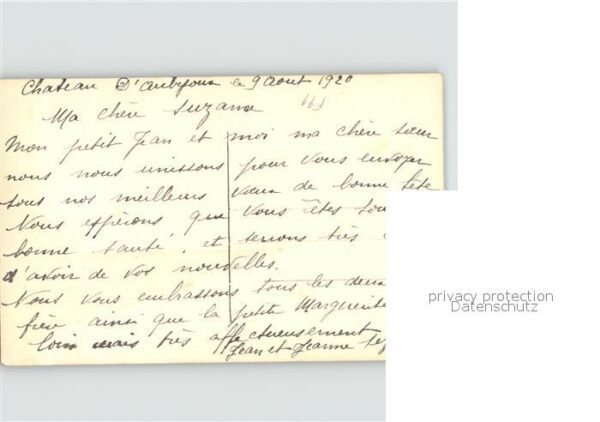 Chateau D'Aubijoux le 9 Aout 1920
Ma chère Suzanne
Mon petit Jean et moi ma chère sœur
nous nous unissons pour vous envoyer
tous nos meilleurs vœux de bonne fête
Nous espérons que vous êtes
bonne santé, et serions très
d'avoir de vos nouvelles.
Nous vous embrassons tous les deux
ainsi que la petite Marguerite
loin mais très affectueusement
Jean et Jeanne
privacy protection
Datenschutz